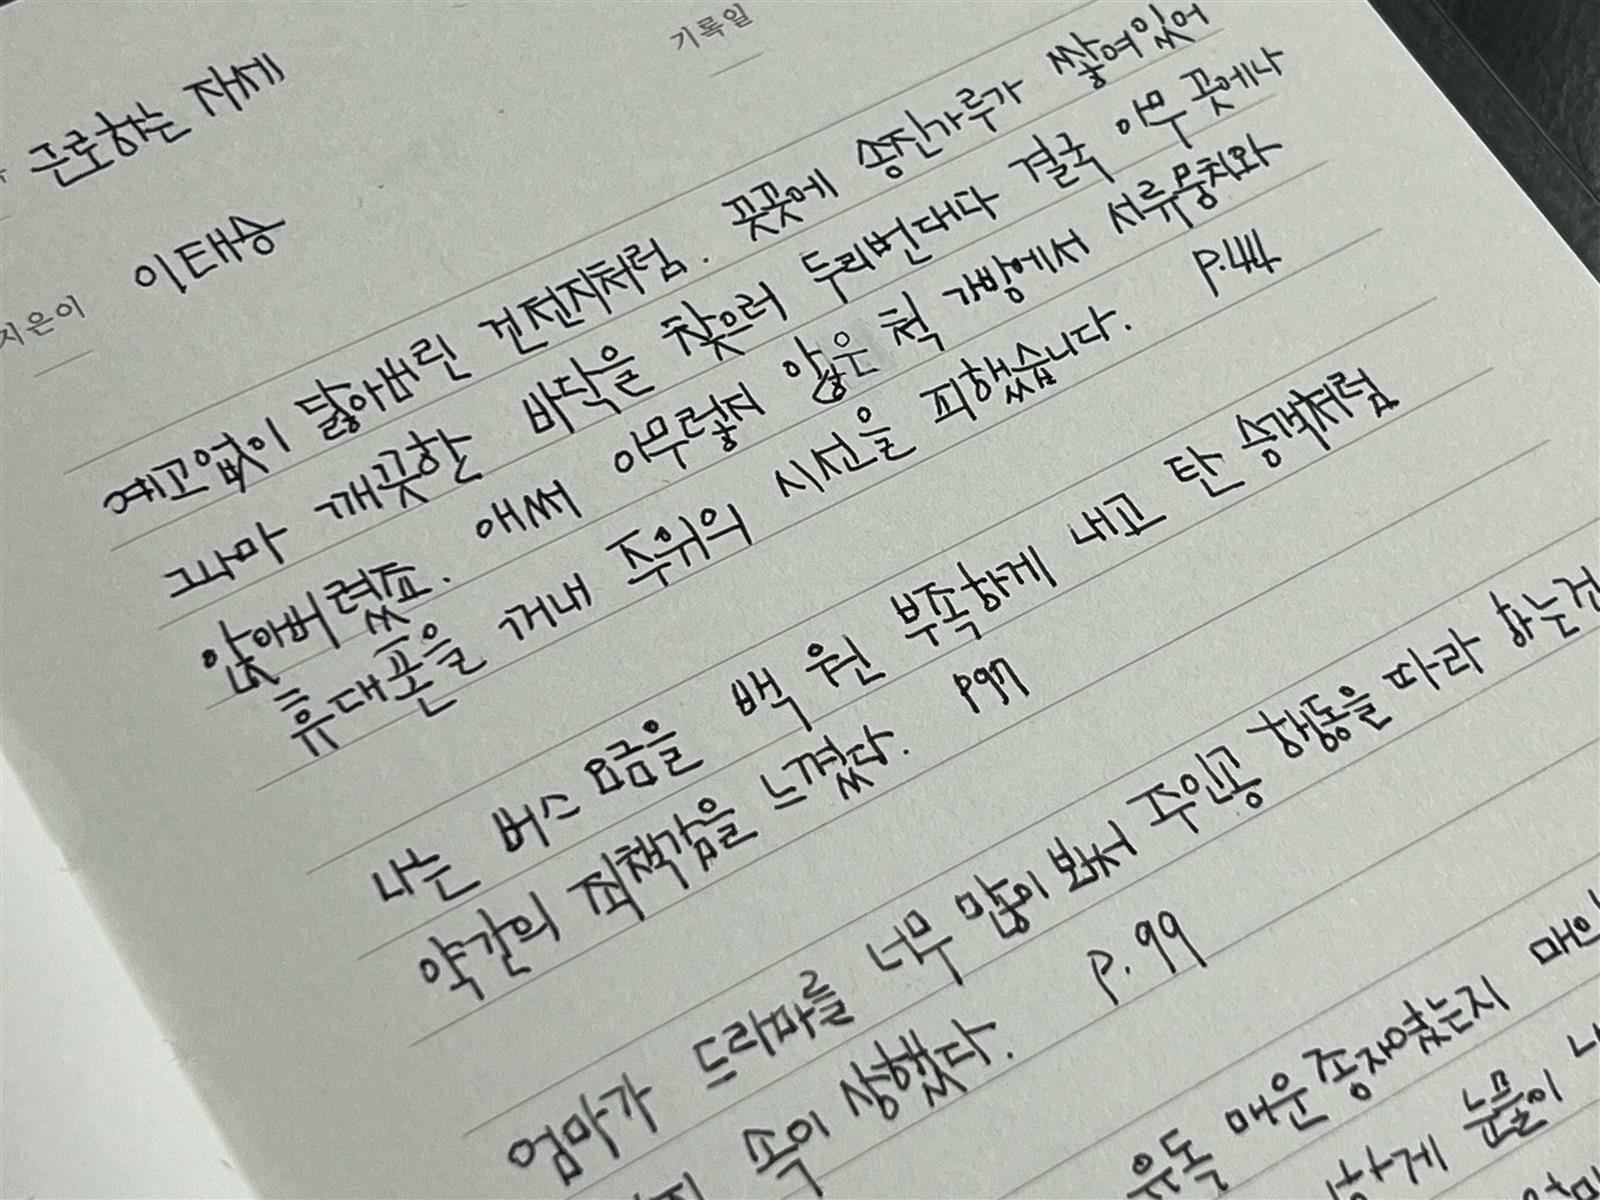 기록일
근로하는 자세
지은이 이태승
예고없이 닳아버린 건전지처럼. 곳곳에 송진가루가 쌓여있어
그나마 깨끗한 바닥을 찾으러 두리번대다 결국 아무 곳에나
앉아버렸죠. 애써 아무렇지 않은 척 가방에서 서류뭉치와
휴대폰을 꺼내 주위의 시선을 피했습니다. P.44
나는 버스 요금을 백 원 부족하게 내고 탄 승객처럼
약간의 죄책감을 느꼈다. P97
엄마가 드라마를 너무 많이 봐서 주인공 행동을 따라 하는건
속이 상했다. P.99
유독 매운 종자였는지
하게 눈물이